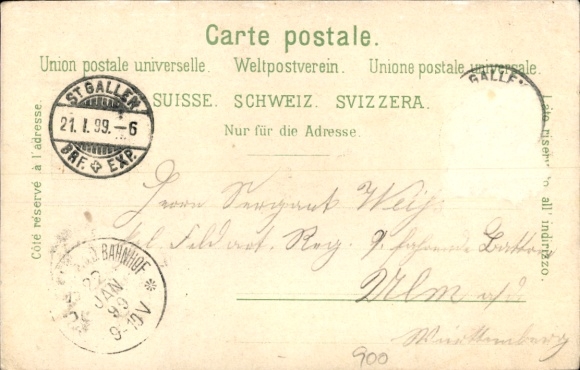 Carte postale.
Union postale universelle. Weltpostverein. Unione postale universale.
SUISSE. SCHWEIZ. SVIZZERA.
Nur für die Adresse.
Côté réservé à l'adresse.
all' indirizzo.
ST. GALLEN
21. I. 99. – 6
BRF. EXP.
GALLEN
Herrn Sergeant Weiß
Feldart. Reg. 9. fahrende
Ulm a/d
Württemberg
BAHNHOF
22
JAN
99
9-10V
900